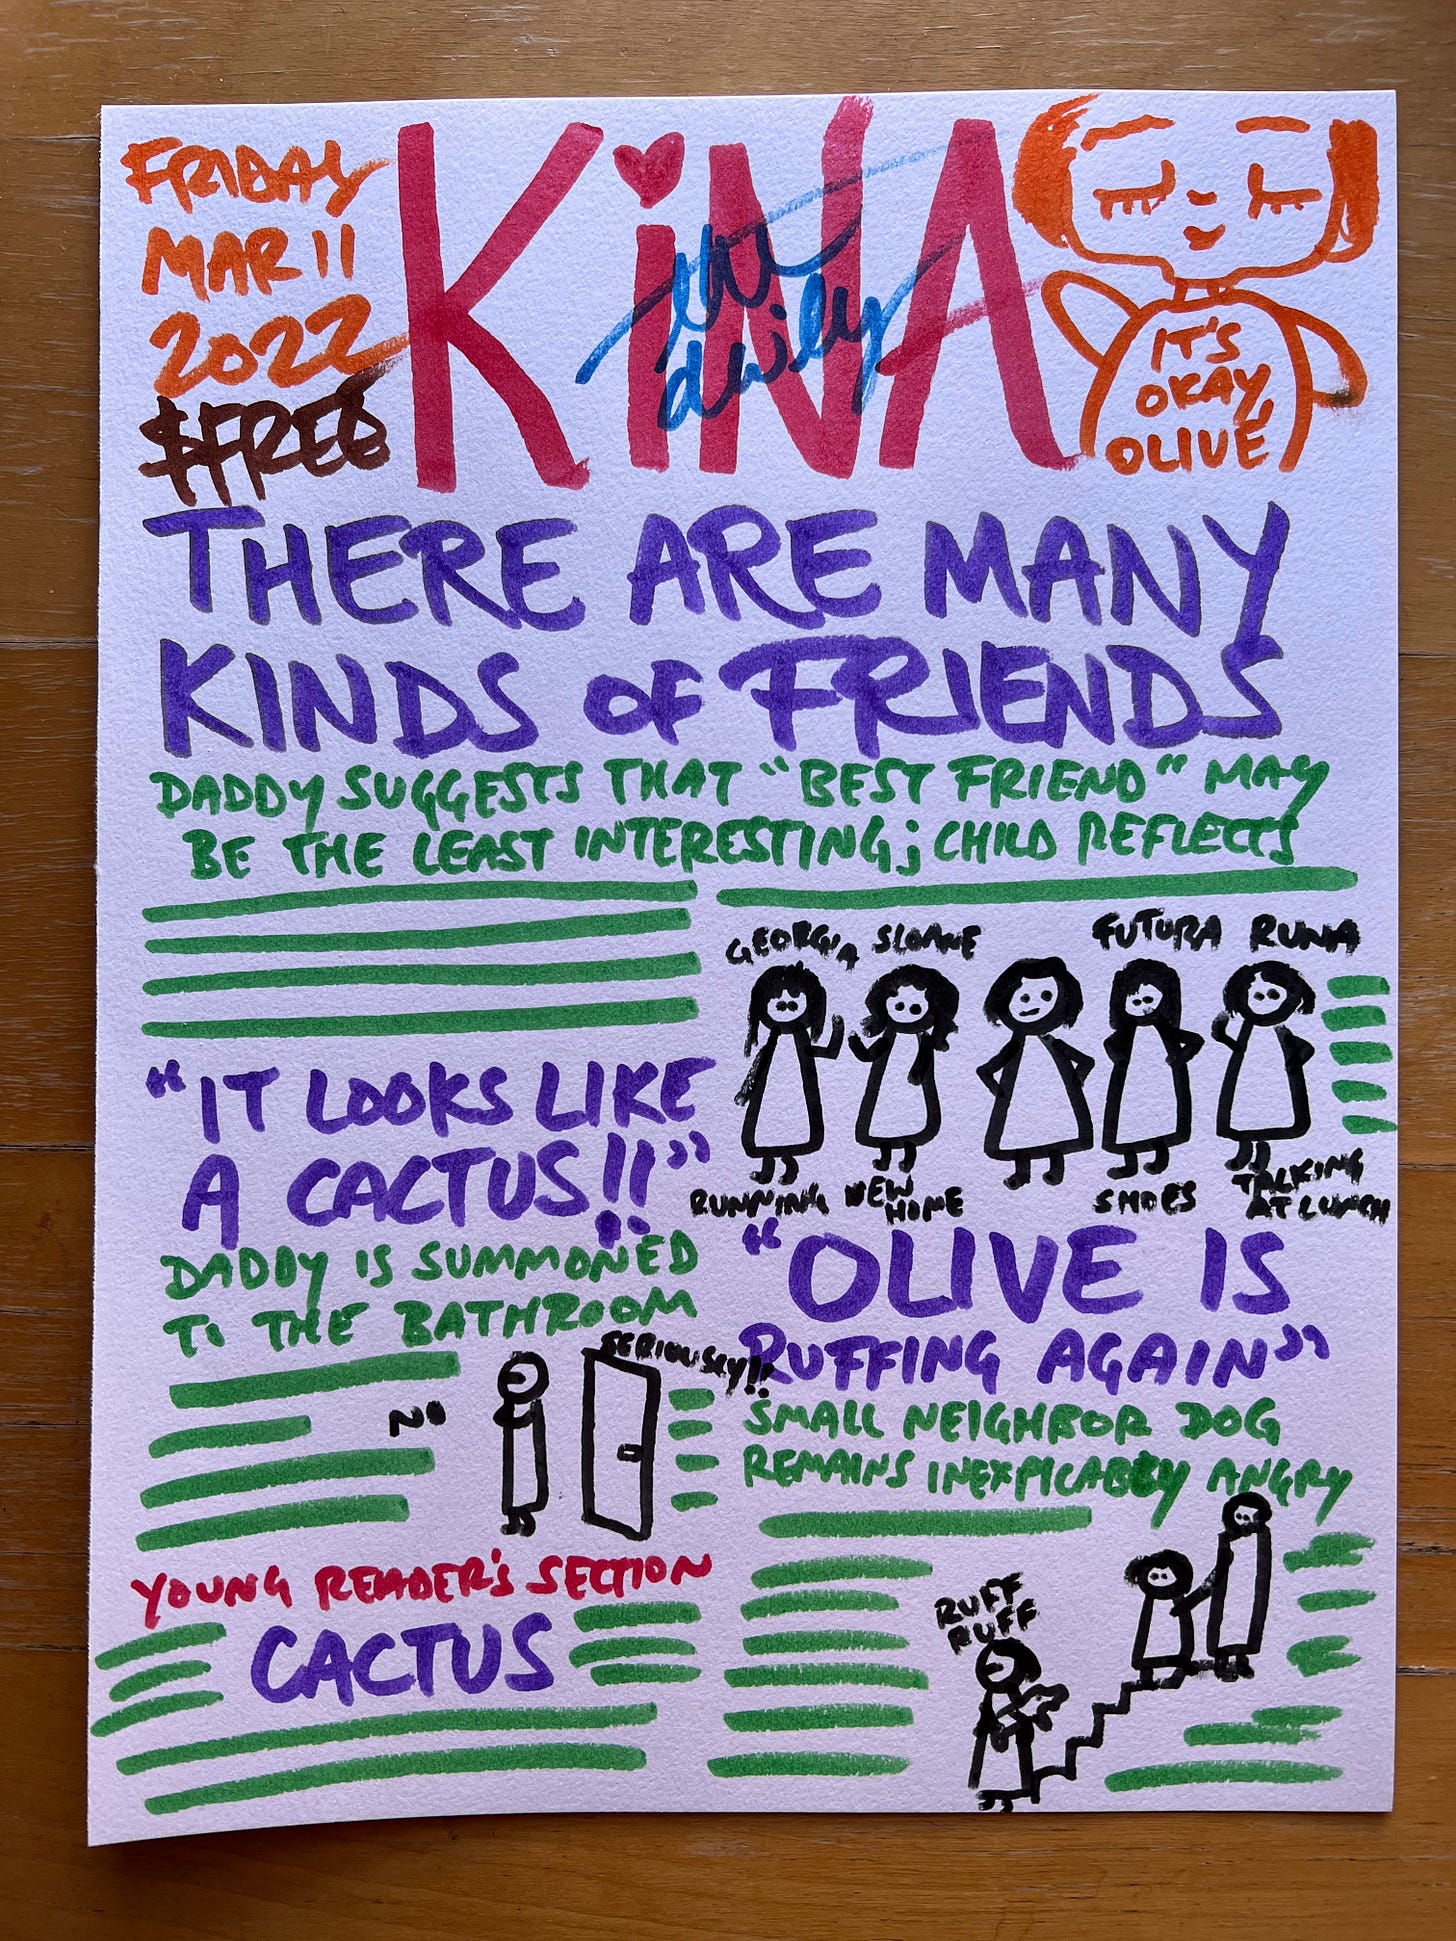 FRIDAY
MAR 11
2022
$FREE
KiNA
the daily
IT'S
OKAY,
OLIVE
THERE ARE MANY
KINDS OF FRIENDS
DADDY SUGGESTS THAT "BEST FRIEND" MAY
BE THE LEAST INTERESTING; CHILD REFLECTS
GEORGIA SLOANE FUTURA RUNA
RUNNING NEW HOME SHOES TALKING AT LUNCH
"IT LOOKS LIKE
A CACTUS!!"
DADDY IS SUMMONED
TO THE BATHROOM
SERIOUSLY!!
NO
"OLIVE IS
RUFFING AGAIN"
SMALL NEIGHBOR DOG
REMAINS INEXPICABLY ANGRY
RUFF
RUFF
YOUNG READER'S SECTION
CACTUS